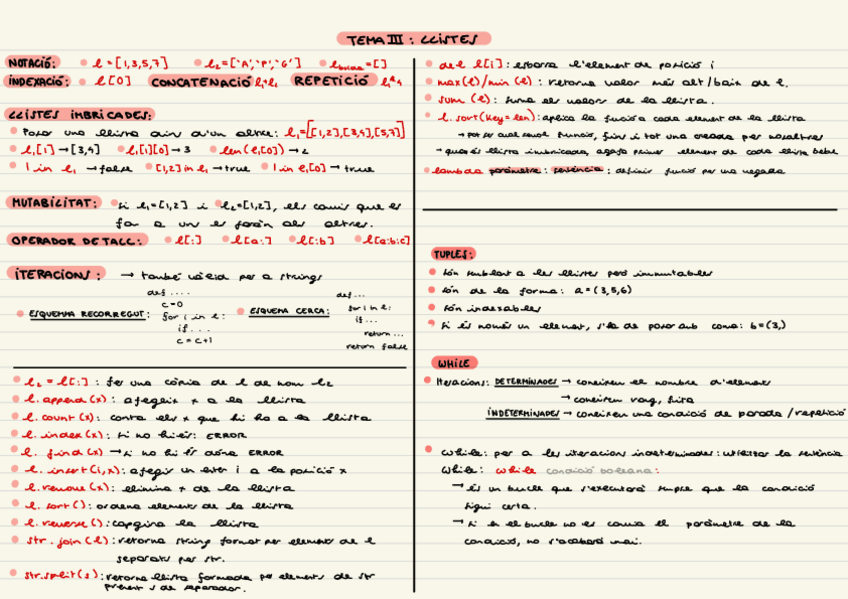 TEMA III: LLISTES
NOTACIÓ: • l = [1,3,5,7] • l₂ = ['A', 'P', 'G'] • l =[]
INDEXACIÓ: • l[0] CONCATENACIÓ l₁+l₂ REPETICIÓ
LLISTES IMBRICADES:
• Posar una llista dins d'un altre: l₁=[[1,2],[3,4],[5,7]]
• l₁[1] → [3,4] • l₁[1][0] → 3 • len(l₁[0]) → 2
• 1 in l₁ → false • [1,2] in l₁ → true • 1 in l₁[0] → true
MUTABILITAT: • Si l₁=[1,2] i l₂=[1,2], els canvis que es
fan a un es faran als altres.
OPERADOR DE TALL: • l[:] • l[a:] • l[:b] • l[a:b:c]
ITERACIONS: → també vàlid per a strings
• ESQUEMA RECORREGUT:
def ....
c=0
for i in l:
if ...
c = c+1
• ESQUEMA CERCA:
def ...
for i in l:
if ...
return ...
return false
• l₂ = l[:] : fer una còpia de l de nom l₂
• l.append(x) : afegeix x a la llista
• l.count(x) : conta els x que hi ha a la llista
• l.index(x) : si no hi és: ERROR
• l.find(x) → si no hi és dóna ERROR
• l.insert(i,x) : afegir un i a la posició x
• l.remove(x) : elimina x de la llista
• l.sort() : ordena elements de la llista
• l.reverse() : capgira la llista
• str.join(l) : retorna string format per elements de l
separats per str.
• str.split(s) : retorna llista formada per elements de str
prenent s de separador.
• del l[i] : esborra l'element de posició i
• max(l)/min(l) : retorna valor més alt/baix de l.
• sum(l) : suma els valors de la llista.
• l.sort(key=len) : aplica la funció a cada element de la llista
→ pot ser qualsevol funció, fins i tot una creada per nosaltres
→ quan és llista imbricada, agafa primer element de cada llista
• lambda paràmetre : sentència : definir funció per una vegada
TUPLES:
• Són semblant a les llistes però immutables
• Són de la forma: a = (3,5,6)
• Són indexables
• Si és només un element, s'ha de posar amb coma: b=(3,)
WHILE
• Iteracions: DETERMINADES → coneixem el nombre d'elements
→ coneixem rang, fita
INDETERMINADES → coneixem una condició de parada / repetició
• While: per a les iteracions indeterminades: utilitzar la sentència
While: while condició booleana:
→ És un bucle que s'executarà sempre que la condició
sigui certa.
→ Si en el bucle no es canvia el paràmetre de la
condició, no s'acabarà mai.